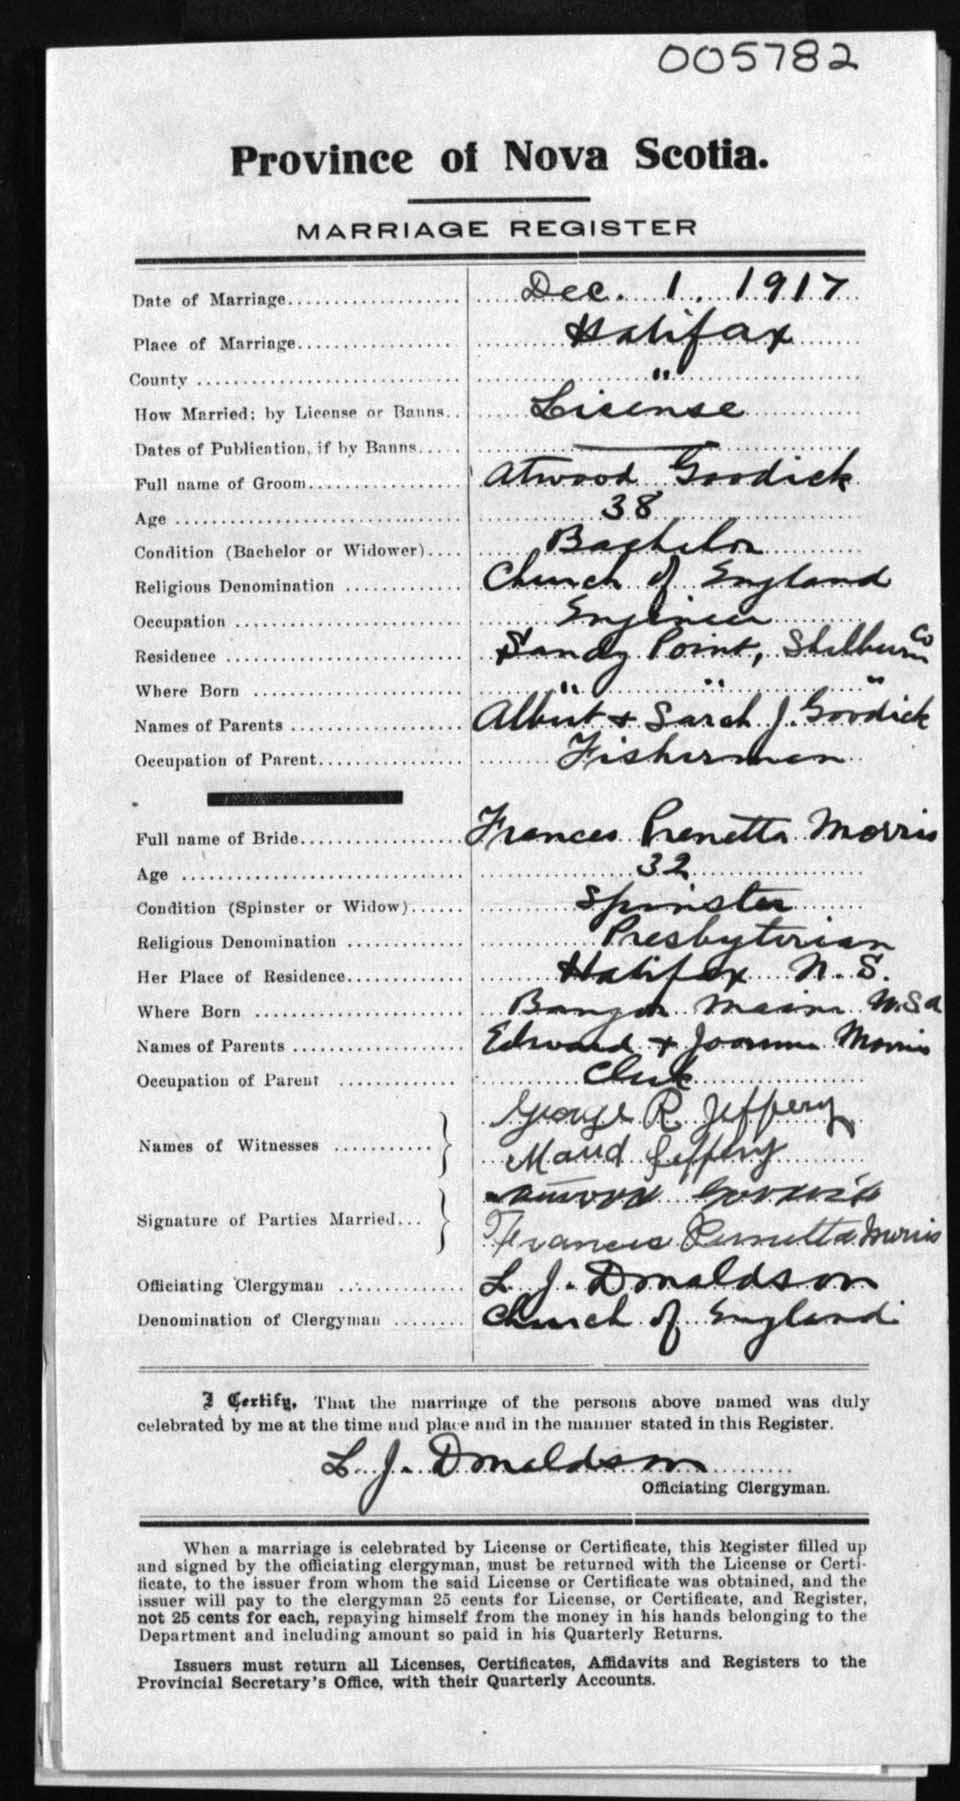 005782
Province of Nova Scotia.
MARRIAGE REGISTER
Date of Marriage Dec. 1. 1917
Place of Marriage Halifax
County "
How Married; by License or Banns License
Dates of Publication, if by Banns —
Full name of Groom Atwood Goodick
Age 38
Condition (Bachelor or Widower) Bachelor
Religious Denomination Church of England
Occupation Engineer
Residence Sandy Point, Shelburne Co
Where Born " " "
Names of Parents Albert + Sarah J. Goodick
Occupation of Parent Fisherman
Full name of Bride Frances Prenetta Morris
Age 32
Condition (Spinster or Widow) Spinster
Religious Denomination Presbyterian
Her Place of Residence Halifax N. S.
Where Born Bangor Maine U.S.A
Names of Parents Edward + Joanna Morris
Occupation of Parent Clerk
Names of Witnesses George R Jeffery
Maud Jeffery
Signature of Parties Married Atwood Goodick
Frances Morris
Officiating Clergyman L. J. Donaldson
Denomination of Clergyman Church of England
I Certify, That the marriage of the persons above named was duly
celebrated by me at the time and place and in the manner stated in this Register.
L. J. Donaldson
Officiating Clergyman.
When a marriage is celebrated by License or Certificate, this Register filled up
and signed by the officiating clergyman, must be returned with the License or Certi-
ficate, to the issuer from whom the said License or Certificate was obtained, and the
issuer will pay to the clergyman 25 cents for License, or Certificate, and Register,
not 25 cents for each, repaying himself from the money in his hands belonging to the
Department and including amount so paid in his Quarterly Returns.
Issuers must return all Licenses, Certificates, Affidavits and Registers to the
Provincial Secretary's Office, with their Quarterly Accounts.